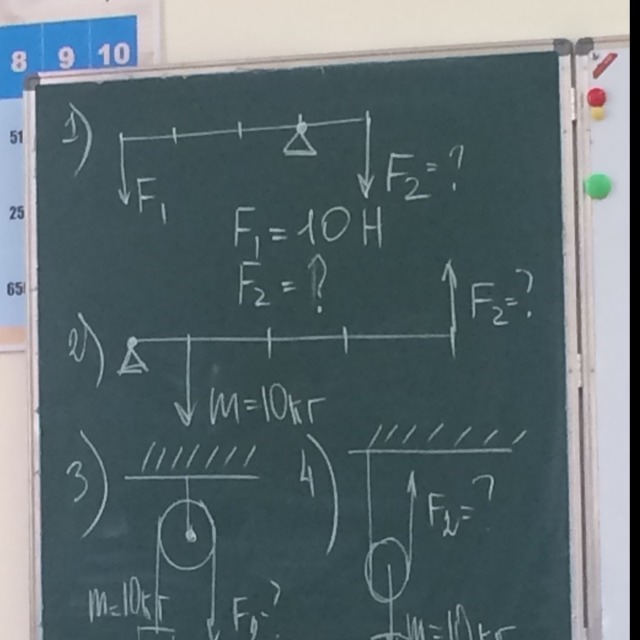 8 9 10
51
25
650
1)
F₁
F₂=?
F₁=10Н
F₂=?
F₂=?
2)
m=10кг
3)
4)
F₂=?
m=10кг
F₂=?
m=10кг